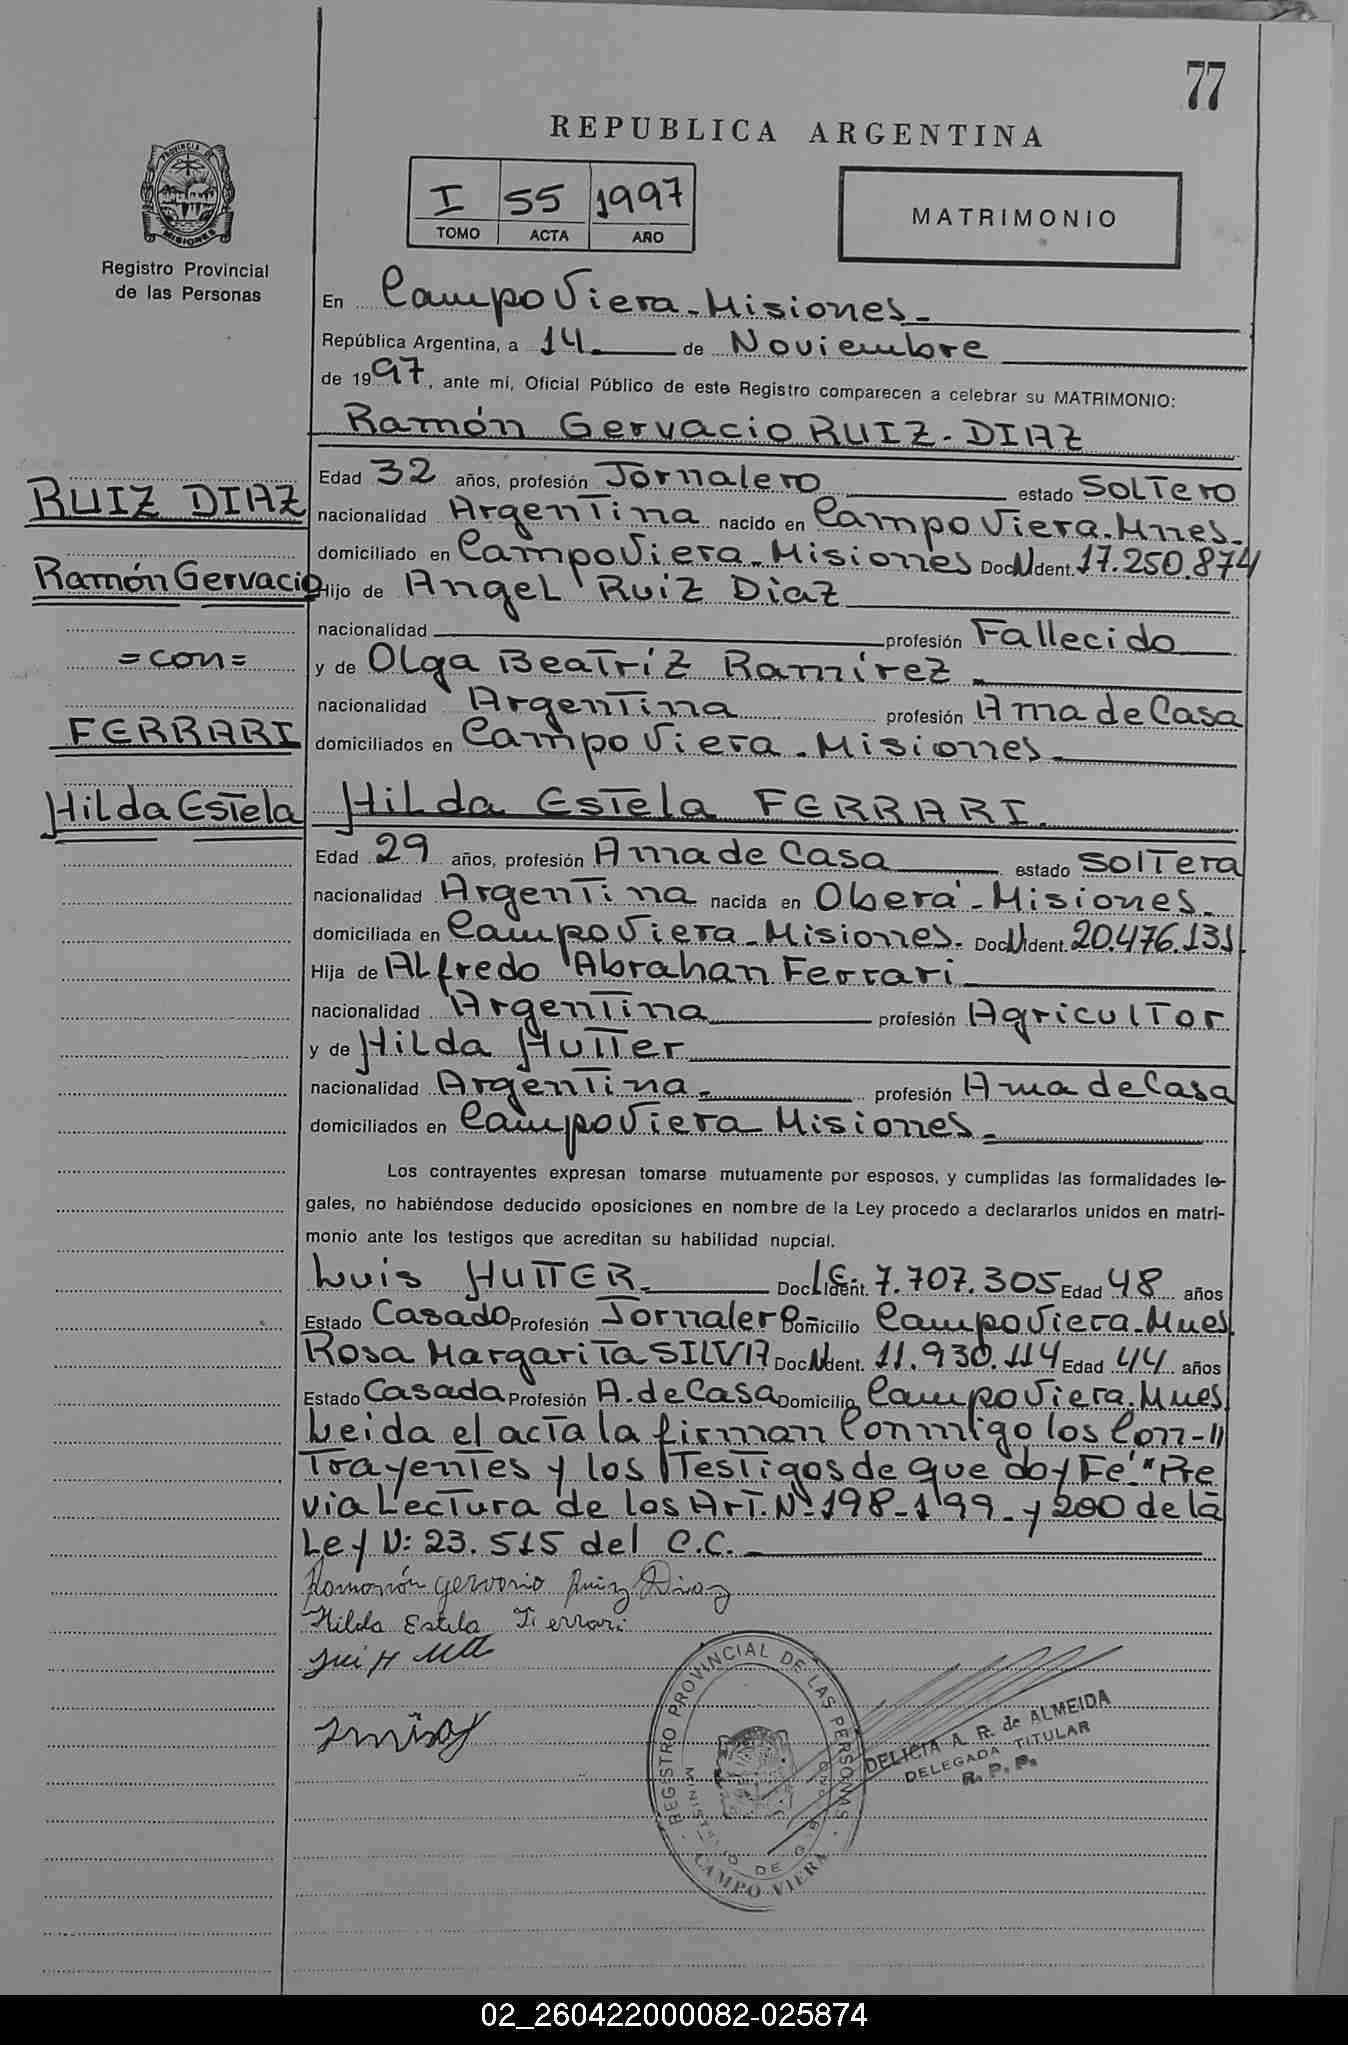 77
REPUBLICA ARGENTINA
I 55 1997
TOMO ACTA AÑO
MATRIMONIO
PROVINCIA DE MISIONES
Registro Provincial
de las Personas
En Campo Viera - Misiones -
República Argentina, a 14 de Noviembre
de 1997, ante mí, Oficial Público de este Registro comparecen a celebrar su MATRIMONIO:
Ramón Gervacio RUIZ - DIAZ
RUIZ DIAZ
Ramón Gervacio
= con =
FERRARI
Hilda Estela
Edad 32 años, profesión Jornalero estado Soltero
nacionalidad Argentina nacido en Campo Viera - Mnes.
domiciliado en Campo Viera - Misiones Doc N Ident. 17.250.874
Hijo de Angel Ruiz Diaz
nacionalidad profesión Fallecido
y de Olga Beatríz Ramírez -
nacionalidad Argentina profesión Ama de Casa
domiciliados en Campo Viera - Misiones
Hilda Estela FERRARI
Edad 29 años, profesión Ama de Casa estado Soltera
nacionalidad Argentina nacida en Oberá - Misiones -
domiciliada en Campo Viera - Misiones. Doc N Ident. 20.476.131
Hija de Alfredo Abrahan Ferrari
nacionalidad Argentina profesión Agricultor
y de Hilda Hutter
nacionalidad Argentina - profesión Ama de Casa
domiciliados en Campo Viera Misiones -
Los contrayentes expresan tomarse mutuamente por esposos, y cumplidas las formalidades le-
gales, no habiéndose deducido oposiciones en nombre de la Ley procedo a declararlos unidos en matri-
monio ante los testigos que acreditan su habilidad nupcial.
Luis HUTTER Doc L.E. Ident. 7.707.305 Edad 48 años
Estado Casado Profesión Jornalero Domicilio Campo Viera - Mnes
Rosa Margarita SILVA Doc N Ident. 11.930.114 Edad 44 años
Estado Casada Profesión A. de Casa Domicilio Campo Viera. Mnes
Leida el acta la firman Conmigo los Con-//
Trayentes y los Testigos de que doy Fé "Pre
via Lectura de los Art. Nº 198 - 199 - y 200 de la
Ley N: 23.515 del C.C.
Ramonón gervasio Ruiz Diaz
Hilda Estela Ferrari
REGISTRO PROVINCIAL DE LAS PERSONAS
MINISTERIO DE GOB
CAMPO VIERA
DELICIA A. R. de ALMEIDA
DELEGADA TITULAR
R. P. P.
02_260422000082-025874